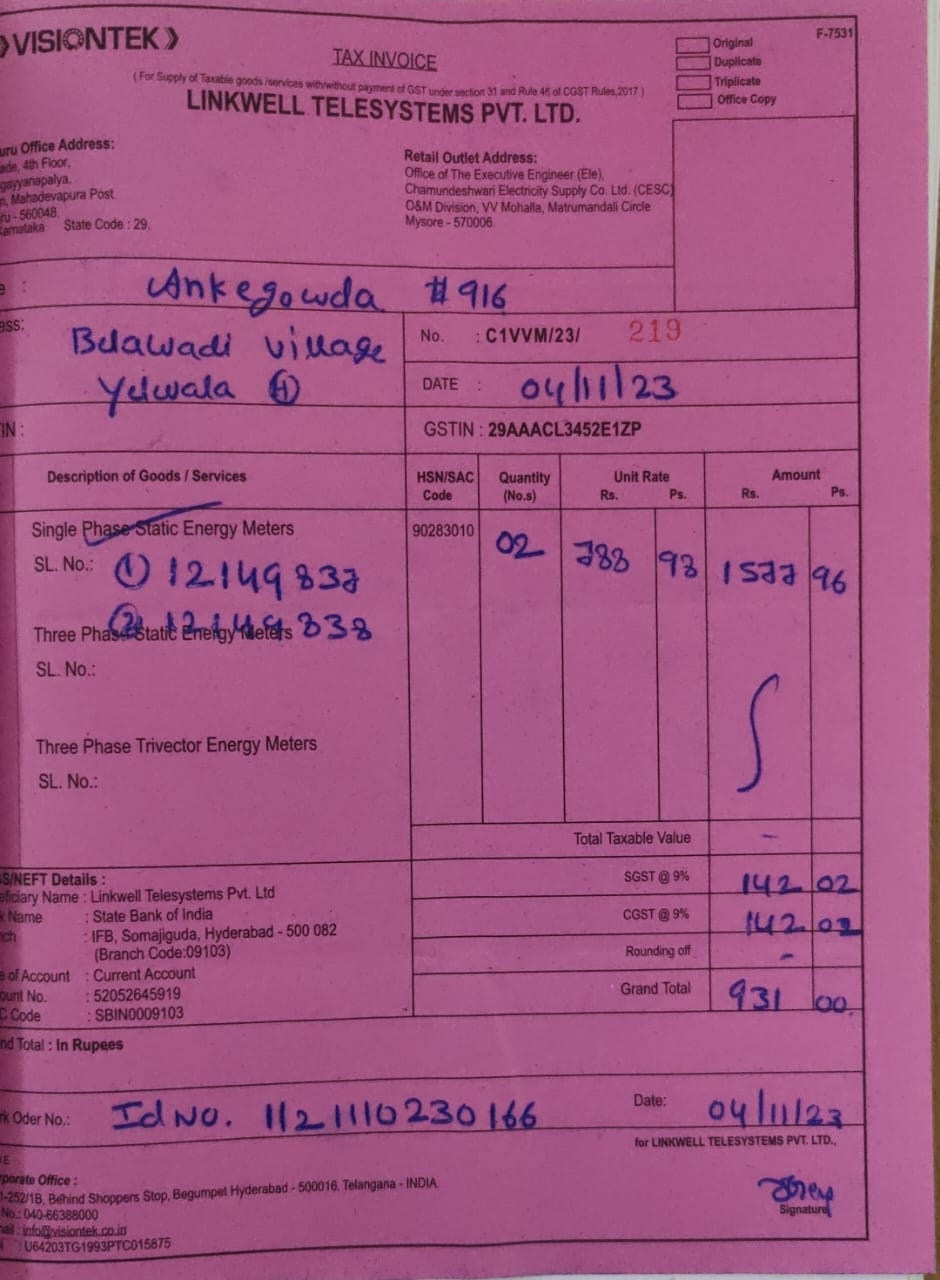 VISIONTEK
F-7531
Original
Duplicate
Triplicate
Office Copy
TAX INVOICE
( For Supply of Taxable goods /services with/without payment of GST under section 31 and Rule 46 of CGST Rules,2017 )
LINKWELL TELESYSTEMS PVT. LTD.
uru Office Address:
ade, 4th Floor,
gayyanapalya,
n, Mahadevapura Post
ru - 560048.
Karnataka State Code : 29,
Retail Outlet Address:
Office of The Executive Engineer (Ele),
Chamundeshwari Electricity Supply Co. Ltd. (CESC)
O&M Division, VV Mohalla, Matrumandali Circle
Mysore - 570006
e : Ankegowda #916
ess: Belawadi village
Yelwala (H)
No. : C1VVM/23/ 219
DATE : 04/11/23
IN :
GSTIN : 29AAACL3452E1ZP
Description of Goods / Services HSN/SAC Code Quantity (No.s) Unit Rate Rs. Ps. Amount Rs. Ps.
Single Phase Static Energy Meters 90283010 02 788 98 1577 96
SL. No.: (1) 12149837
(2) 12149838
Three Phase Static Energy Meters
SL. No.:
Three Phase Trivector Energy Meters
SL. No.:
Total Taxable Value -
SGST @ 9% 142 02
CGST @ 9% 142 02
Rounding off -
Grand Total 931 00
S/NEFT Details :
eficiary Name : Linkwell Telesystems Pvt. Ltd
k Name : State Bank of India
nch : IFB, Somajiguda, Hyderabad - 500 082
(Branch Code:09103)
e of Account : Current Account
ount No. : 52052645919
C Code : SBIN0009103
nd Total : In Rupees
rk Oder No.: Id No. 11211110230166
Date: 04/11/23
for LINKWELL TELESYSTEMS PVT. LTD.,
Signature
porate Office :
1-252/1B, Behind Shoppers Stop, Begumpet Hyderabad - 500016. Telangana - INDIA.
No.: 040-66388000
mail : info@visiontek.co.in
N : U64203TG1993PTC015875